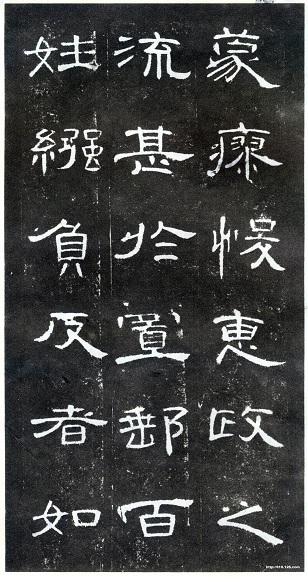 蒙瘳悛惠政之
流甚於置郵百
姓繦負反者如